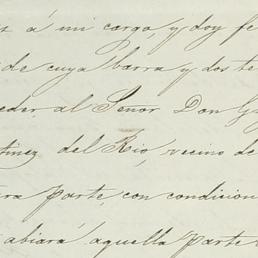 á mi cargo, y doy fe
de cuya barra y dos te
eder, al Señor Don G
tinez del Rio, vecino de
ra parte, con condicion
abiará aquella parte